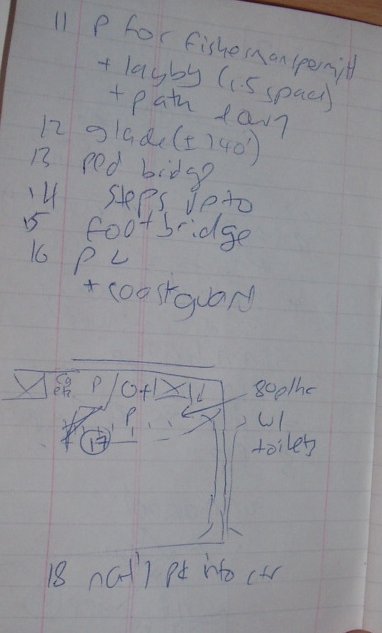 11 P for fisherman permit
+ layby (1.5 space)
+ path down
12 glade (± 740')
13 ped bridge
14 steps up to
15 footbridge
16 P L
+ coastguard
P
P
17
w/
toilets
18 nat'l pk into ctr